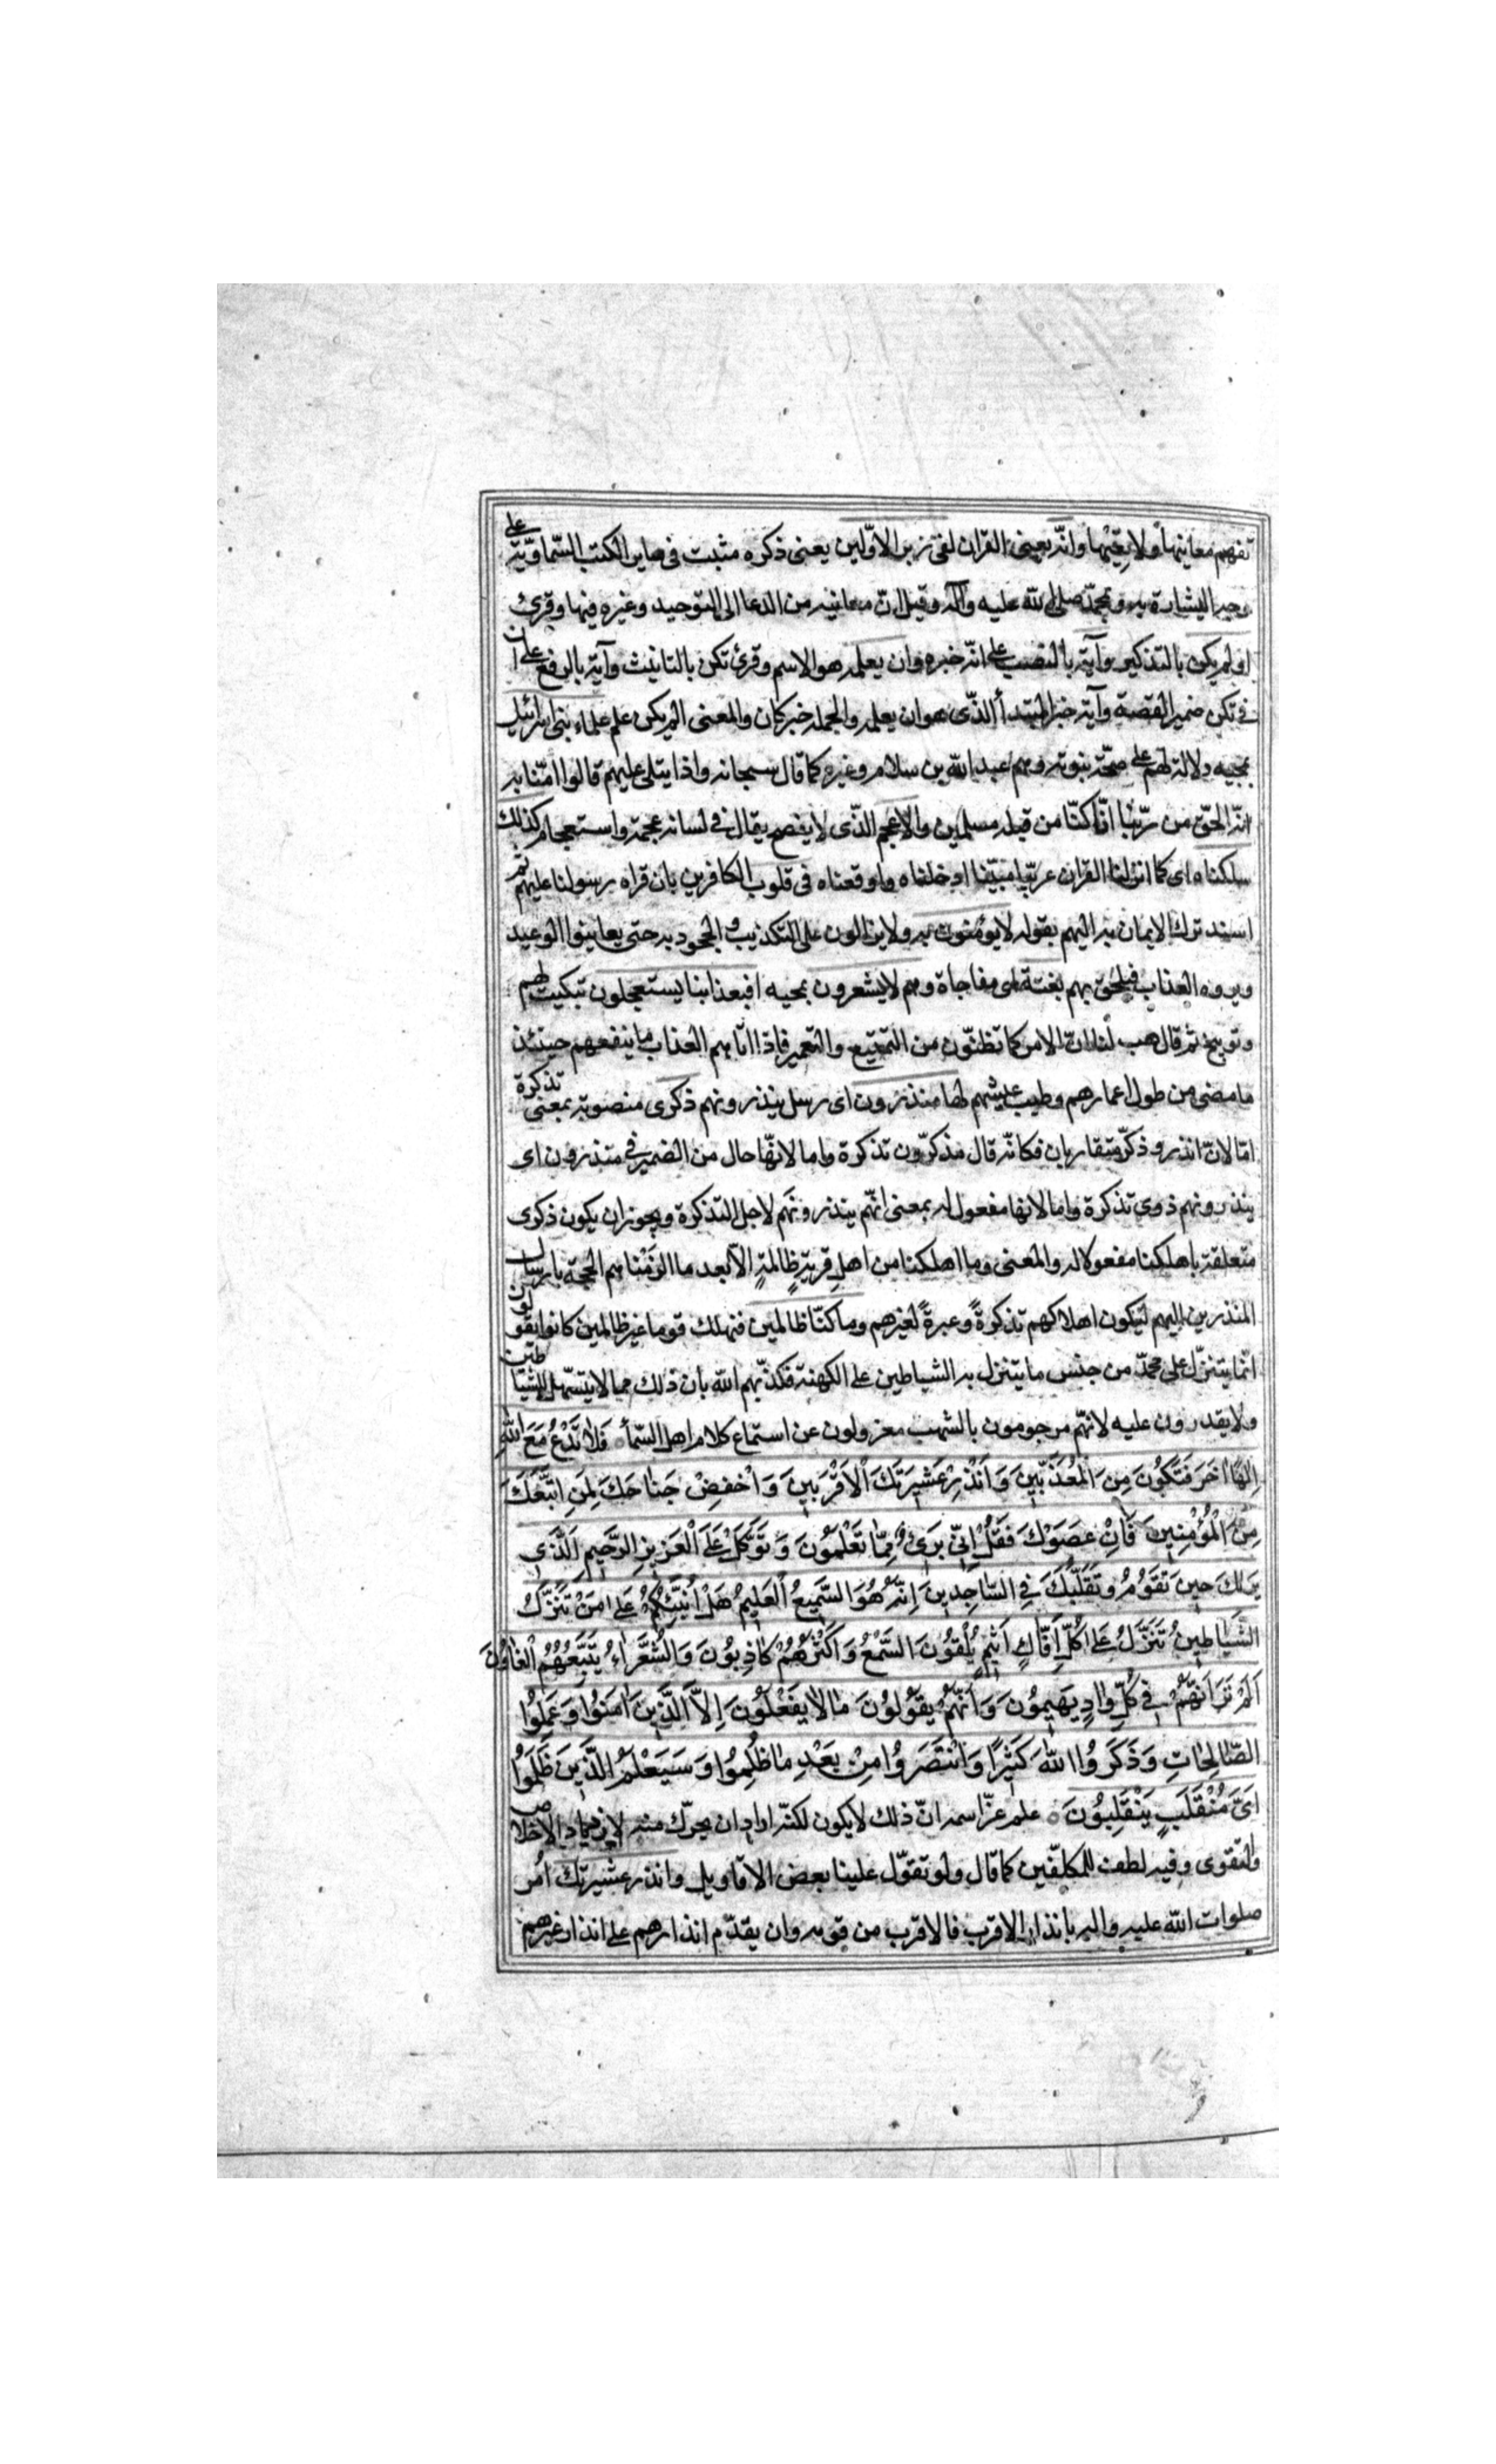 تفهم معانيها ولا يعيها وانّه يعنى القران لفى زبر الاوّلين يعنى ذكره مثبت فى ساير الكتب السّماويّة على
وجه البشارة به وبمحمّد صلى الله عليه وآله وقيل انّ معانيه من الدعا الى التوحيد وغيره فيها وقرئ
اولم يكن بالتذكير وآية بالنصب على انّه خبره وان يعلمه هو الاسم وقرئ تكن بالتانيث وآية بالرفع على ان
فى تكن ضمير القصة وآية خبر المبتدأ الذّى هو ان يعلمه والجملة خبر كان والمعنى الم يكن علم علماء بنى اسرائيل
بمجيه دلالة لهم على صحّة نبوته وهم عبد الله بن سلام وغيره كما قال سبحانه واذا يتلى عليهم قالوا امنّا به
انّه الحقّ من ربّنا انّا كنّا من قبله مسلمين والاعجم الذّى لا يفصح يقال فى لسانه عجمة واستعجام كذلك
سلكناه اى كما انزلنا القران عربيّا مبيّنا ادخلناه واوقعناه فى قلوب الكافرين بان قراه رسولنا عليهم ثم
اسند ترك الايمان به اليهم بقوله لا يؤمنون به ولا يزالون على التكذيب والجحود به حتى يعاينوا الوعيد
ويروه العذاب فيلحق بهم بغتة اى مفاجاة وهم لا يشعرون بمجيه افبعذابنا يستعجلون تبكيت لهم
وتوبيخ ثم قال هب لنا انّ الامر كما تظنّون من التمتيع والتعمير فاذا اتاهم العذاب ما ينفعهم حينئذ
ما مضى من طول اعمارهم وطيب عيشهم لها منذرون اى رسل ينذرونهم ذكرى منصوبة بمعنى تذكرة
امّا لانّ انذر وذكّر متقاربان فكانّه قال مذكرّون تذكرة واما لانهّا حال من الضمير فى منذرون اى
ينذرونهم ذوى تذكرة واما لانها مفعول له بمعنى انهّم ينذرونهم لاجل التذكرة ويجوز ان يكون ذكرى
متعلقة باهلكنا مفعولا له والمعنى وما اهلكنا من اهل قريةٍ ظالمةٍ الاّ بعد ما الزمناهم الحجة بارسال
المنذرين اليهم ليكون اهلاكهم تذكرةً وعبرةً لغيرهم وما كنّا ظالمين فنهلك قوما غير ظالمين كانوا يقولون
انّما يتنزّل على محمّد من جنس ما يتنزل به الشياطين على الكهنة فكذّبهم الله بان ذلك مما لا يتسهّل للشياطين
ولا يقدرون عليه لانهّم مرجومون بالشهب معزولون عن استماع كلام اهل السّمأ ○ فَلا تَدْعُ مَعَ اللهِ
اِلهًا اخَرَ فَتَكُونَ مِنَ الْمُعَذَّبينَ وَاَنْذِرْ عَشيرَتَكَ الْاَقْرَبينَ وَاخْفِضْ جَناحَكَ لِمَنِ اتَّبَعَكَ
مِنَ الْمُؤْمِنينَ فَاِنْ عَصَوْكَ فَقُلْ اِنّى بَرئٌ مِمّا تَعْلَمُونَ وَتَوَكَّلْ عَلَى الْعَزيزِ الرَّحيمِ الَّذى
يَريكَ حينَ تَقُومُ وَتَقَلُّبَكَ فِى السّاجِدينَ اِنَّهُ هُوَ السَّميعُ الْعَليمُ هَلْ اُنَبِّئُكُمْ عَلى مَنْ تَنَزَّلُ
الشَّياطينُ تَنَزَّلُ عَلى كُلِّ اَفّاكٍ اَثيمٍ يُلْقُونَ السَّمْعَ وَاَكْثَرُهُمْ كاذِبُونَ وَالشُّعَراءُ يَتَّبِعُهُمُ الْغاوُنَ
اَلَمْ تَرَ اَنَّهُمْ فى كُلِّ وادٍ يَهيمُونَ وَاَنَّهُمْ يَقُولُونَ مالا يَفْعَلُونَ اِلاَّ الَّذينَ امَنُوا وَعَمِلُوا
الصّالِحاتِ وَذَكَرُوا اللهَ كَثيرًا وَانْتَصَرُوا مِنْ بَعْدِ ما ظُلِمُوا وَسَيَعْلَمُ الَّذينَ ظَلَمُوا
اَىَّ مُنْقَلَبٍ يَنْقَلِبُونَ ○ علم عزّ اسمه انّ ذلك لا يكون لكنّه اراد ان يحرّك منه لازدياد الاخلاص
والتقوى وفيه لطف للمكلفّين كما قال ولو تقوّل علينا بعض الاقاويل وانذر عشيرتك امر
صلوات الله عليه واله بانذار الاقرب فالاقرب من قومه وان يقدّم انذارهم على انذار غيرهم